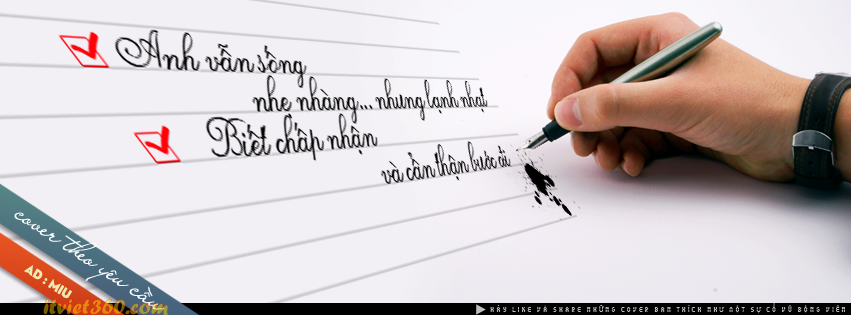 Anh vẫn sống
nhẹ nhàng... nhưng lạnh nhạt
Biết chấp nhận
và cẩn thận bước đi
cover theo yêu cầu
AD : MIU
itviet360.com
HÃY LIKE VÀ SHARE NHỮNG COVER BẠN THÍCH NHƯ MỘT SỰ CỔ VŨ ĐỘNG VIÊN